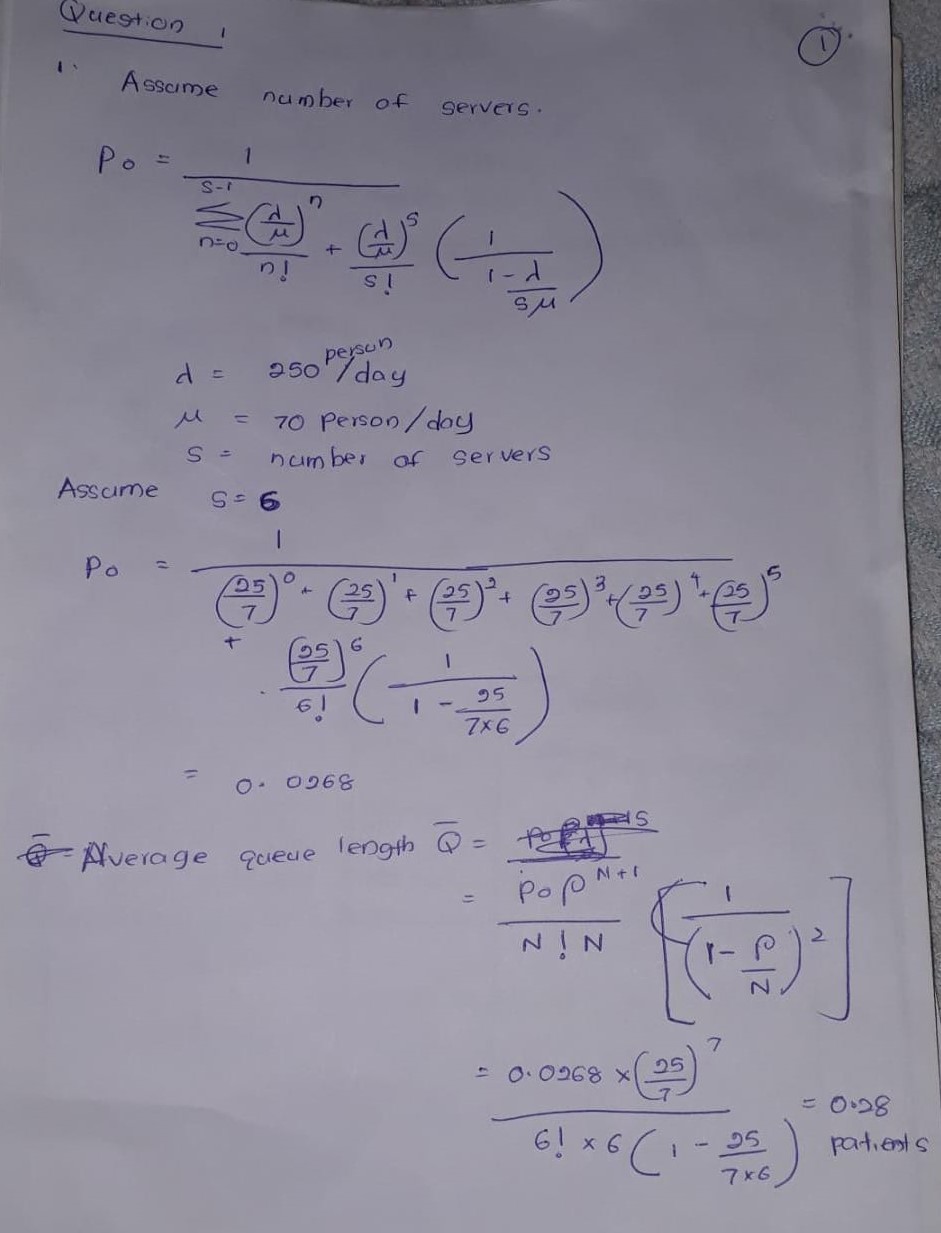 Question 1
①
1. Assume number of servers.
P0 = 1
S-1
Σ (λ/μ)^n / n! + (λ/μ)^S / S! ( 1 / (1 - λ/Sμ) )
n=0
λ = 250 person/day
μ = 70 Person/day
S = number of servers
Assume S = 6
P0 = 1
(25/7)^0 + (25/7)^1 + (25/7)^2 + (25/7)^3 + (25/7)^4 + (25/7)^5
+ (25/7)^6 / 6! ( 1 / (1 - 25/7×6) )
= 0.0268
Average queue length Q̄ =
= P0 ρ^N+1 / N! N [ 1 / (1 - ρ/N)^2 ]
= 0.0268 × (25/7)^7 / 6! × 6 (1 - 25/7×6) = 0.28 patients